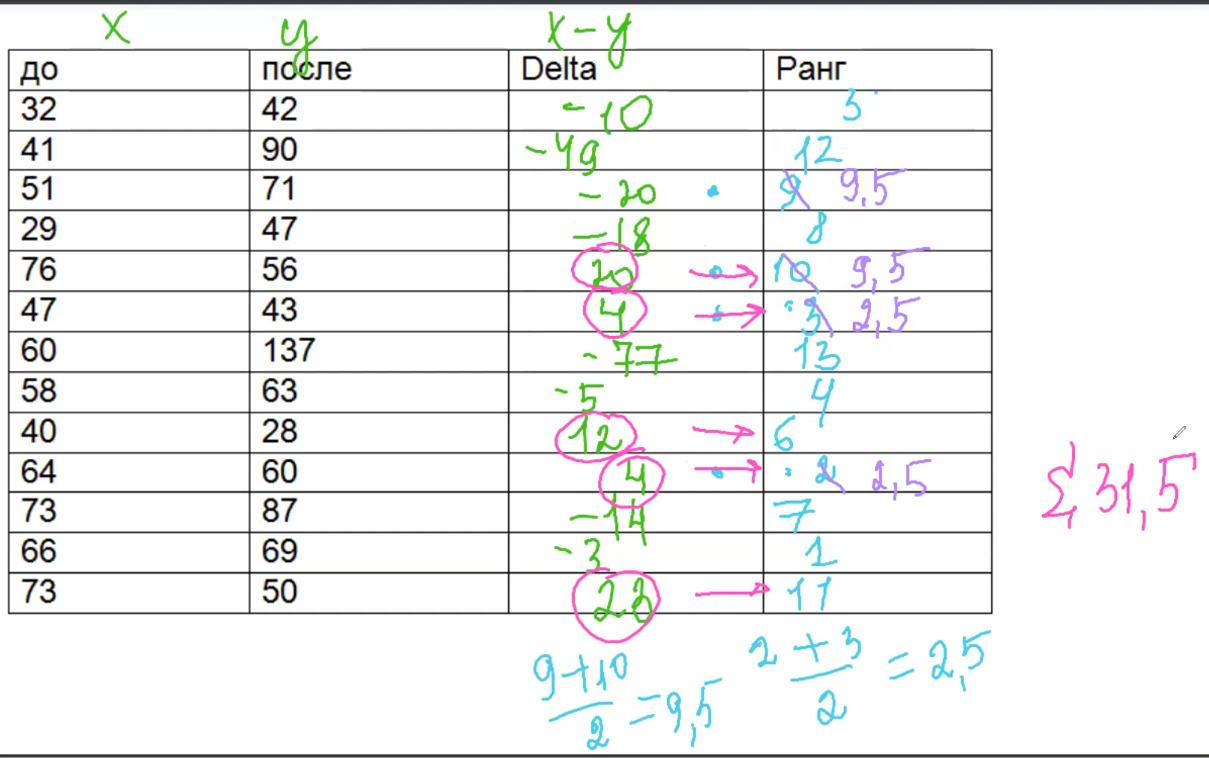 x y x-y
до после Delta Ранг
32 42 -10 5
41 90 -49 12
51 71 -20 9 9,5
29 47 -18 8
76 56 20 10 9,5
47 43 4 3 2,5
60 137 -77 13
58 63 -5 4
40 28 12 6
64 60 4 2 2,5
73 87 -14 7
66 69 -3 1
73 50 23 11
Σ 31,5
9+10/2=9,5
2+3/2=2,5